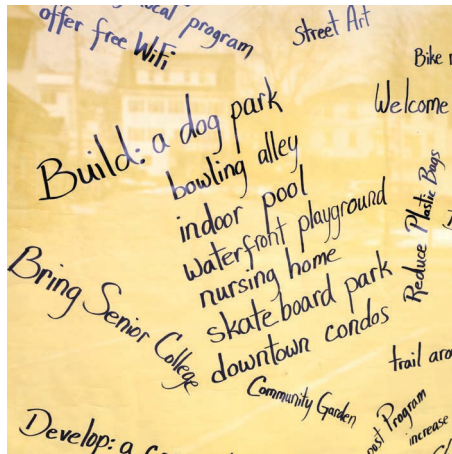 local program
offer free WiFi
Street Art
Bike
Welcome
Build: a dog park
bowling alley
indoor pool
waterfront playground
nursing home
skateboard park
downtown condos
Reduce Plastic Bags
Bring Senior College
trail
Community Garden
Program
increase
Develop: a